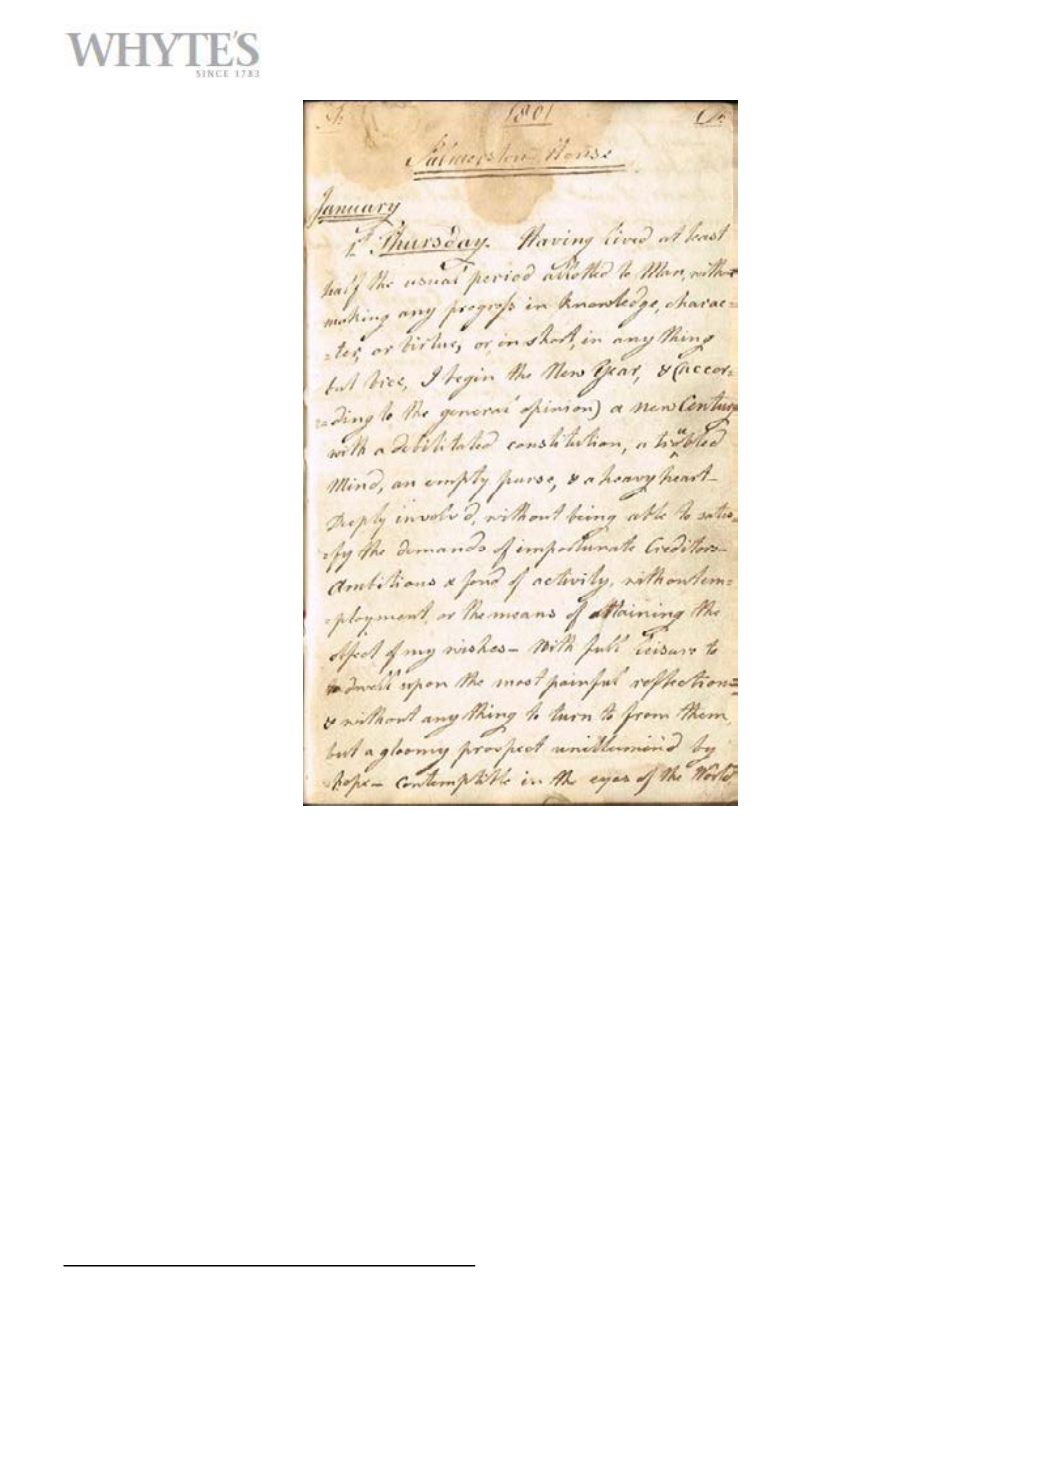 WHYTE'S
SINCE 1783
1801
Palmerston House
January
1st Thursday. Having lived at least
half the usual period allotted to Man, without
making any progress in knowledge, charac=
=ter, or virtue, or, in short, in any thing
but vice, I begin the New Year, & (accor=
=ding to the general opinion) a new Century
with a debilitated constitution, a troubled
Mind, an empty purse, & a heavy heart—
Deeply involv'd, without being able to satis=
=fy the demands of importunate Creditors—
Ambitious & fond of activity, without em=
=ployment, or the means of attaining the
object of my wishes— With full leisure to
dwell upon the most painful reflections
& without any thing to turn to from them,
but a gloomy prospect unillumin'd by
hope— Contemptible in the eyes of the World